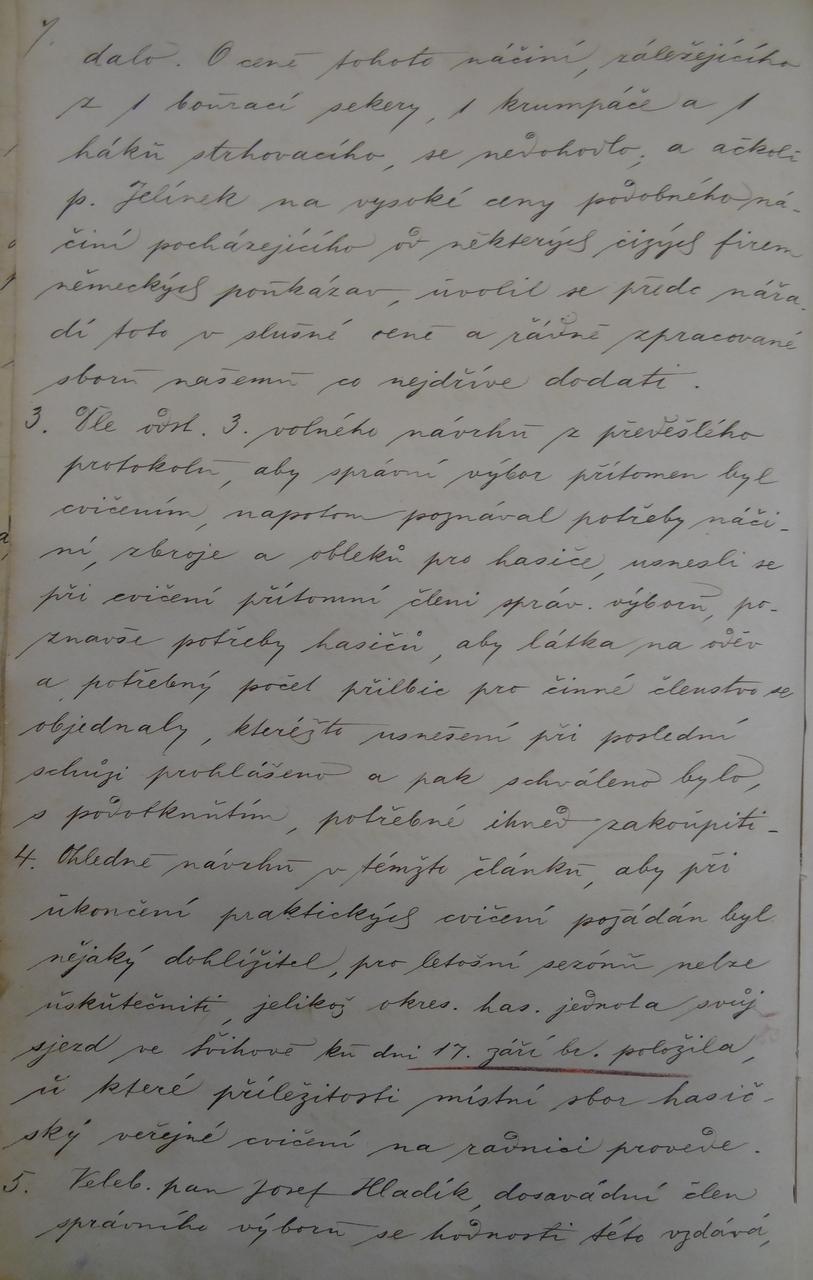 7.
dalo. O ceně tohoto náčiní, záležejícího
z 1 bourací sekery, 1 krumpáče a 1
háku strhovacího, se nedohodlo; a ačkoli
p. Jelínek na vysoké ceny podobného ná-
činí pocházejícího od některých cizých firem
německých poukázav, uvolil se předc nářa-
dí toto v slušné ceně a řádně zpracované
sboru našemu co nejdříve dodati.
3. Dle odst. 3. volného návrhu z předešlého
protokolu, aby správní výbor přítomen byl
cvičením, napotom poznával potřeby náči-
ní, zbroje a obleků pro hasiče, usnesli se
při cvičení přítomní členi správ. výboru, po-
znavše potřeby hasičů, aby látka na oděv
a potřebný počet přilbic pro činné členstvo se
objednaly, kteréžto usnešení při poslední
schůzi prohlášeno a pak schváleno bylo,
s podotknutím, potřebné ihned zakoupiti-
4. Ohledně návrhu v témžto článku, aby při
ukončení praktických cvičení požádán byl
nějaký dohlížitel, pro letošní sezónu nelze
uskutečniti, jelikož okres. has. jednota svůj
sjezd ve Švihově ku dni 17. září br. položila,
u které příležitosti místní sbor hasič-
ský veřejné cvičení na radnici provede.
5. Veleb. pan Josef Hladík, dosavádní člen
správního výboru se hodnosti této vzdává,